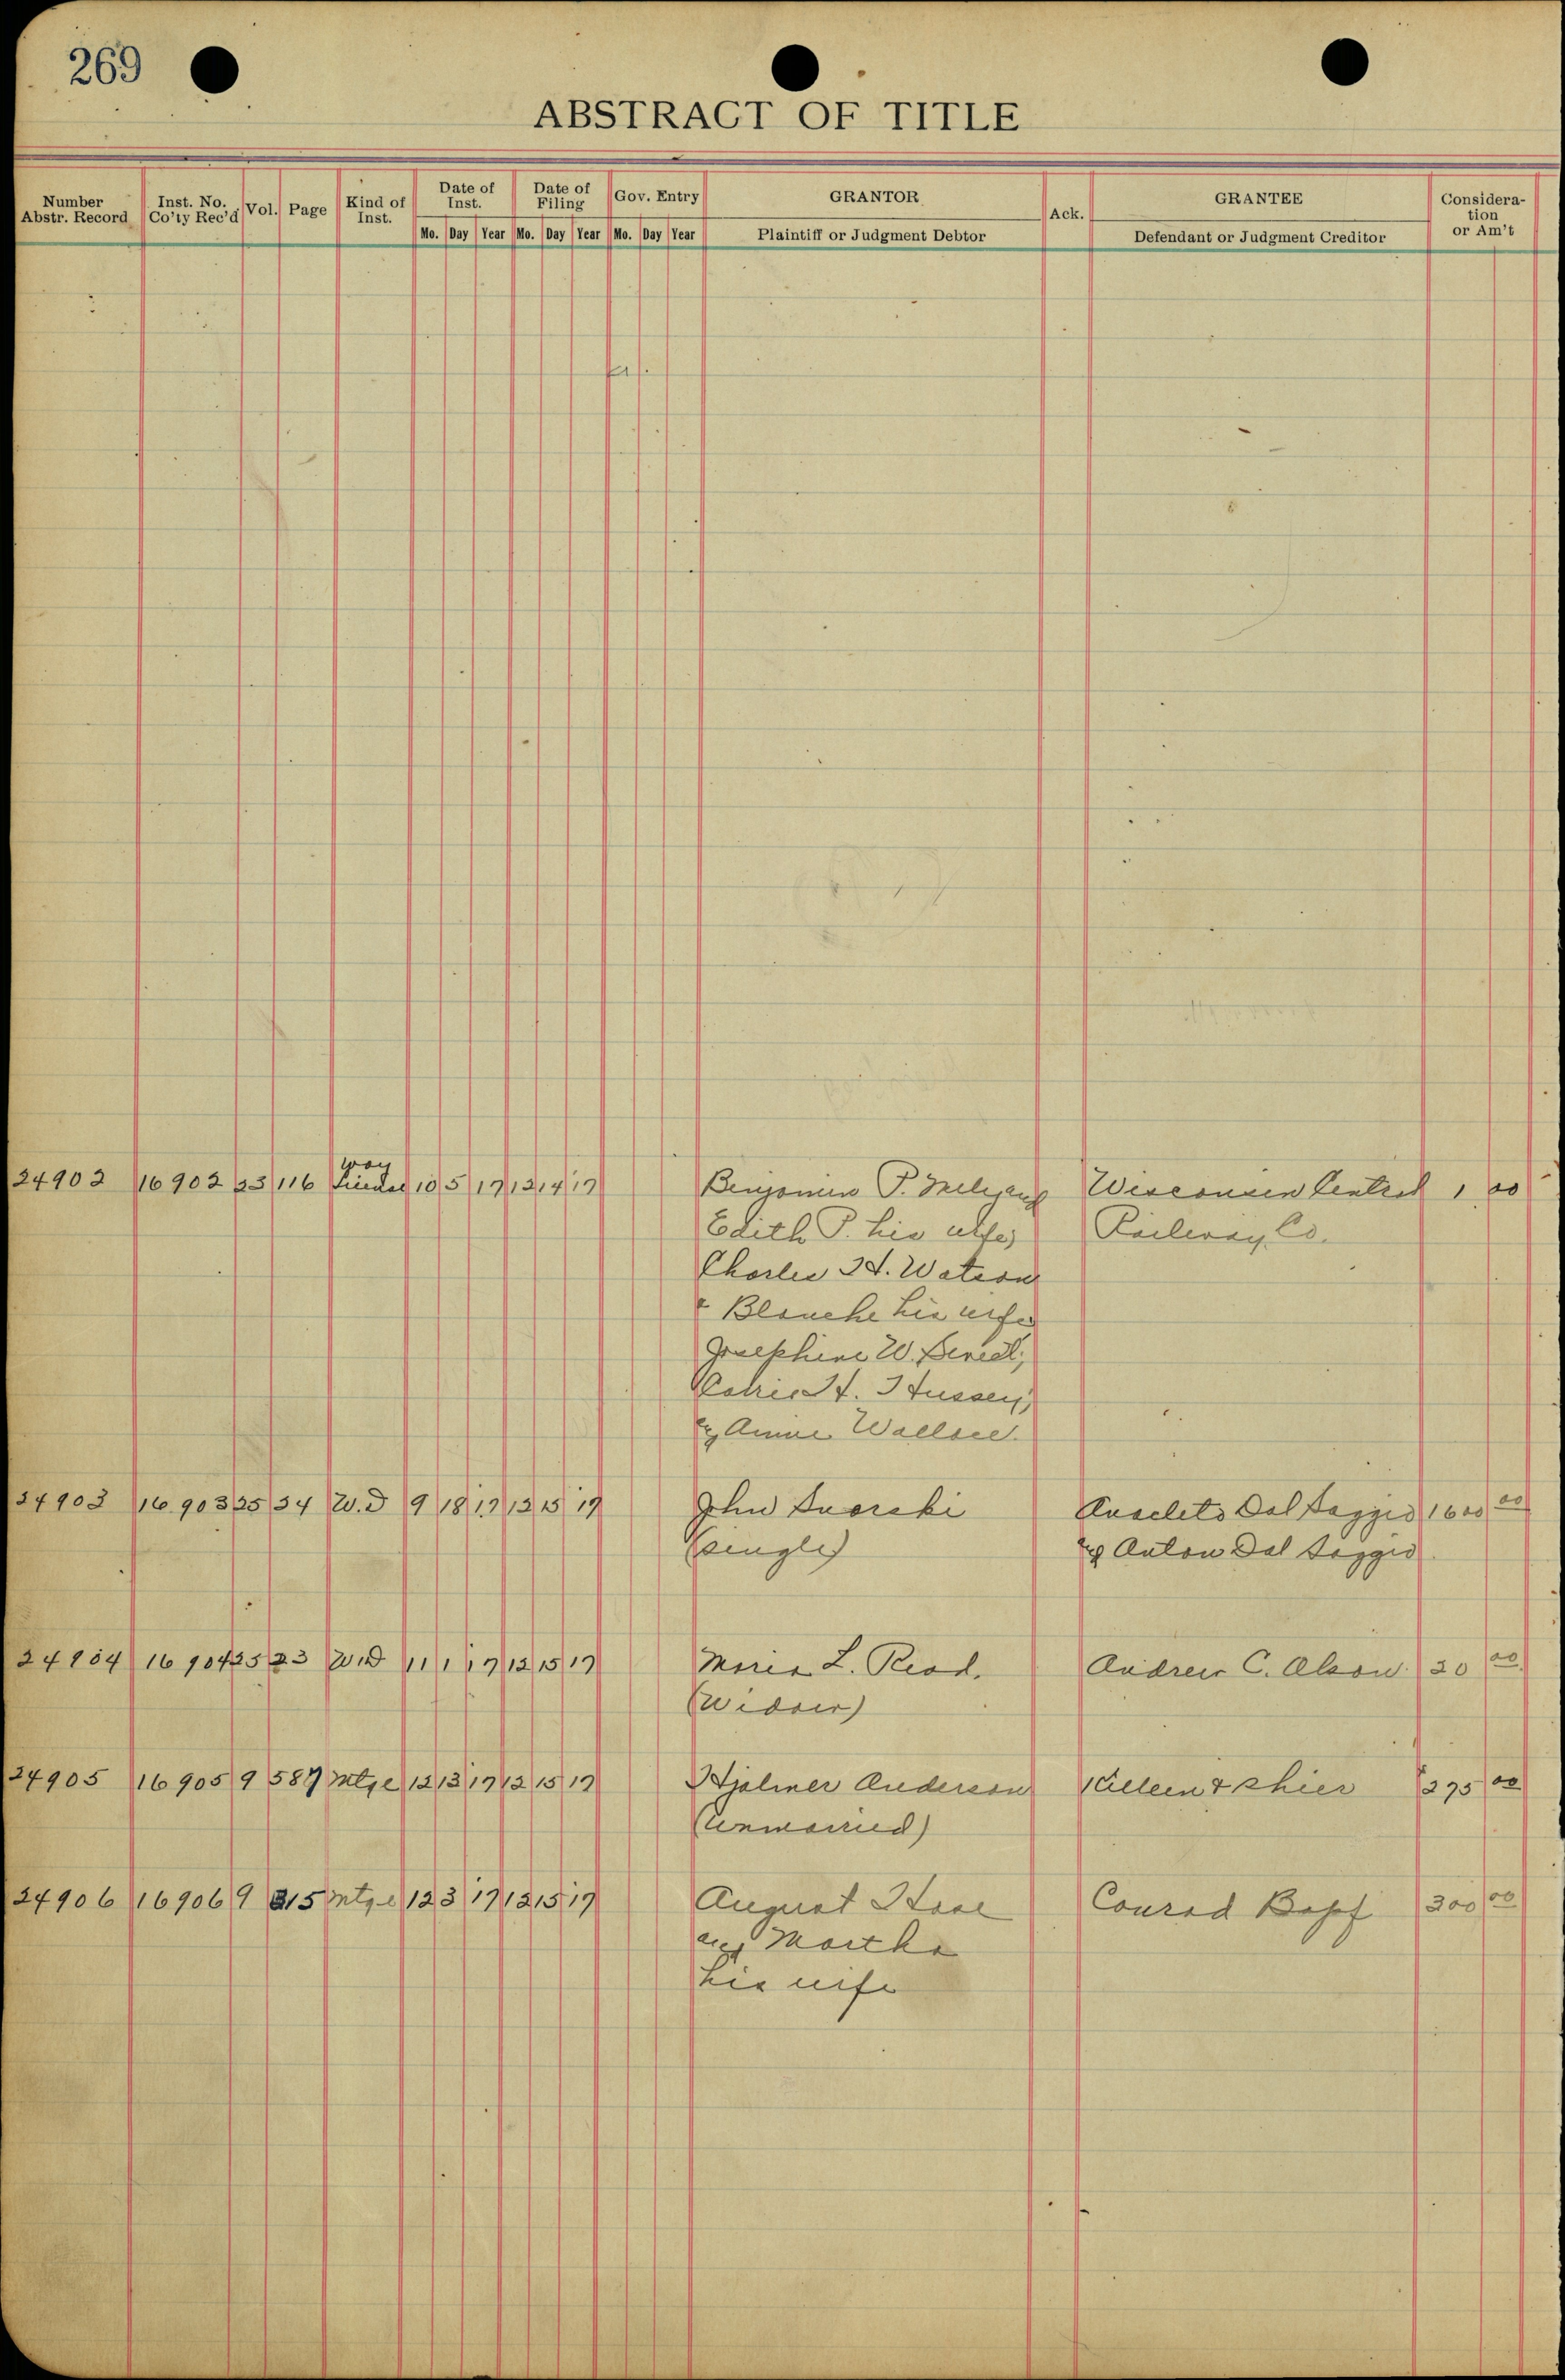 269
ABSTRACT OF TITLE
Number Abstr. Record Inst. No. Co'ty Rec'd Vol. Page Kind of Inst. Date of Inst. Date of Filing Gov. Entry GRANTOR Ack. GRANTEE Considera-tion or Am't
Mo. Day Year Mo. Day Year Mo. Day Year Plaintiff or Judgment Debtor Defendant or Judgment Creditor
24902 16902 23 116 way 10 5 17 12 14 17 Benjamin P. Wisconsin Central 1 00
Edith P. his wife, Railway Co.
Charles H. Watson
& Blanche his wife
Josephine W.
H. Hussey,
& Anna Wallace.
24903 16903 25 34 W.D 9 18 17 12 15 17 John Anseleto Dal Saggio 1600 00
(single) & Anton Dal Saggio
24904 16904 25 23 W.D 11 1 17 12 15 17 Maria L. Read. Andrew C. Olson. 20 00
(Widow)
24905 16905 9 587 Mtge 12 13 17 12 15 17 Hjalmer Anderson Killeen & Shier 275 00
(Unmarried)
24906 16906 9 315 Mtge 12 3 17 12 15 17 August Haase Conrad Bapf 300 00
and Martha
his wife